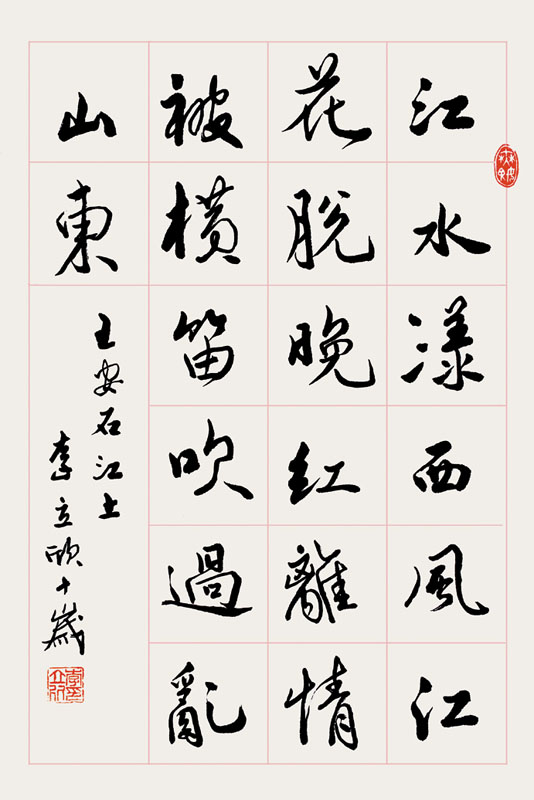 江水漾西風江
花脫晚紅離情
被橫笛吹過亂
山東
王安石江上
李立十歲